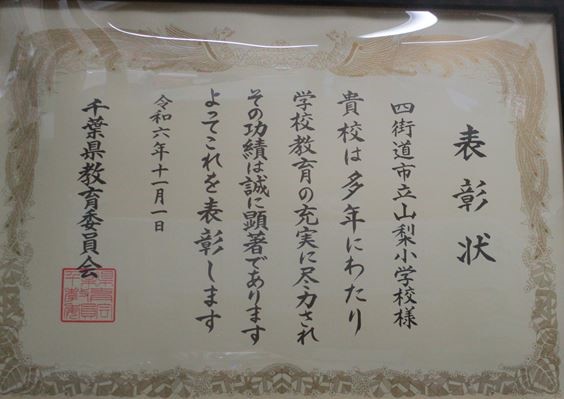 表彰状
四街道市立山梨小学校様
貴校は多年にわたり
学校教育の充実に尽力され
その功績は誠に顕著であります
よってこれを表彰します
令和六年十一月一日
千葉県教育委員会